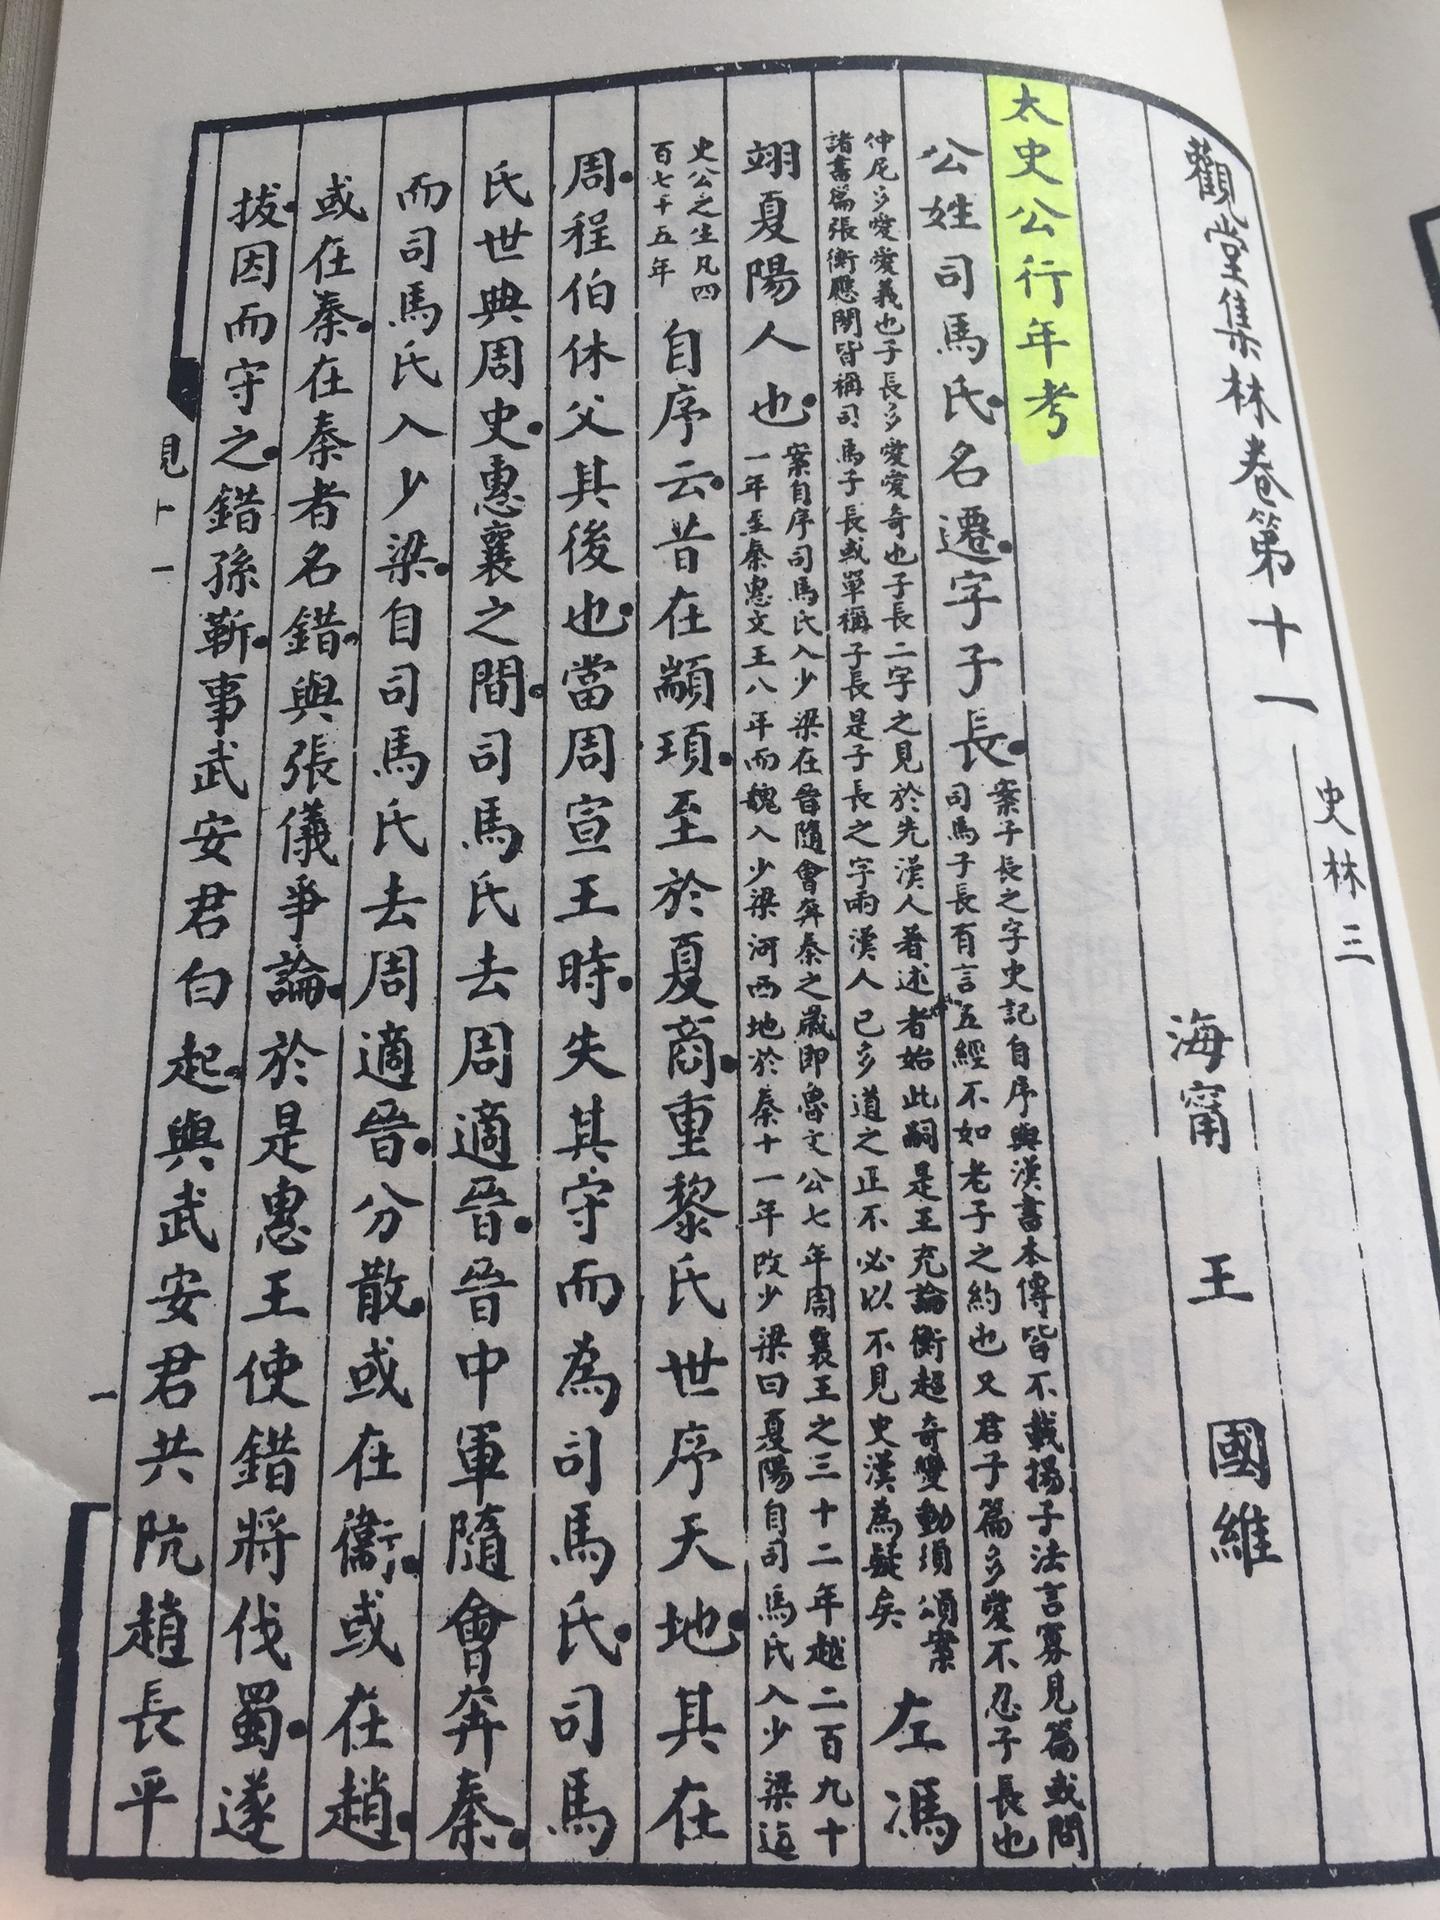 觀堂集林卷第十一
史林三
海甯 王 國維
太史公行年考
公姓司馬氏名遷字子長
案子長之字史記自序與漢書本傳皆不載揚子法言寡見篇或問
司馬子長有言五經不如老子之約也又君子篇多愛不忍子長也
仲尼多愛愛義也子長多愛愛奇也子長二字之見於先漢人著述者始此嗣是王充論衡超奇變動須頌案
諸書篇張衡應閒皆稱司馬子長或單稱子長是子長之字兩漢人已多道之正不必以不見史漢為疑矣
左馮
翊夏陽人也
案自序司馬氏入少梁在晉隨會奔秦之歲即魯文公七年周襄王之三十二年越二百九十
一年至秦惠文王八年而魏入少梁河西地於秦十一年改少梁曰夏陽自司馬氏入少梁迄
史公之生凡四
百七十五年
自序云昔在顓頊至於夏商重黎氏世序天地其在
周程伯休父其後也當周宣王時失其守而為司馬氏司馬
氏世典周史惠襄之間司馬氏去周適晉晉中軍隨會奔秦
而司馬氏入少梁自司馬氏去周適晉分散或在衞或在趙
或在秦在秦者名錯與張儀爭論於是惠王使錯將伐蜀遂
拔因而守之錯孫蘄事武安君白起與武安君共阬趙長平
一